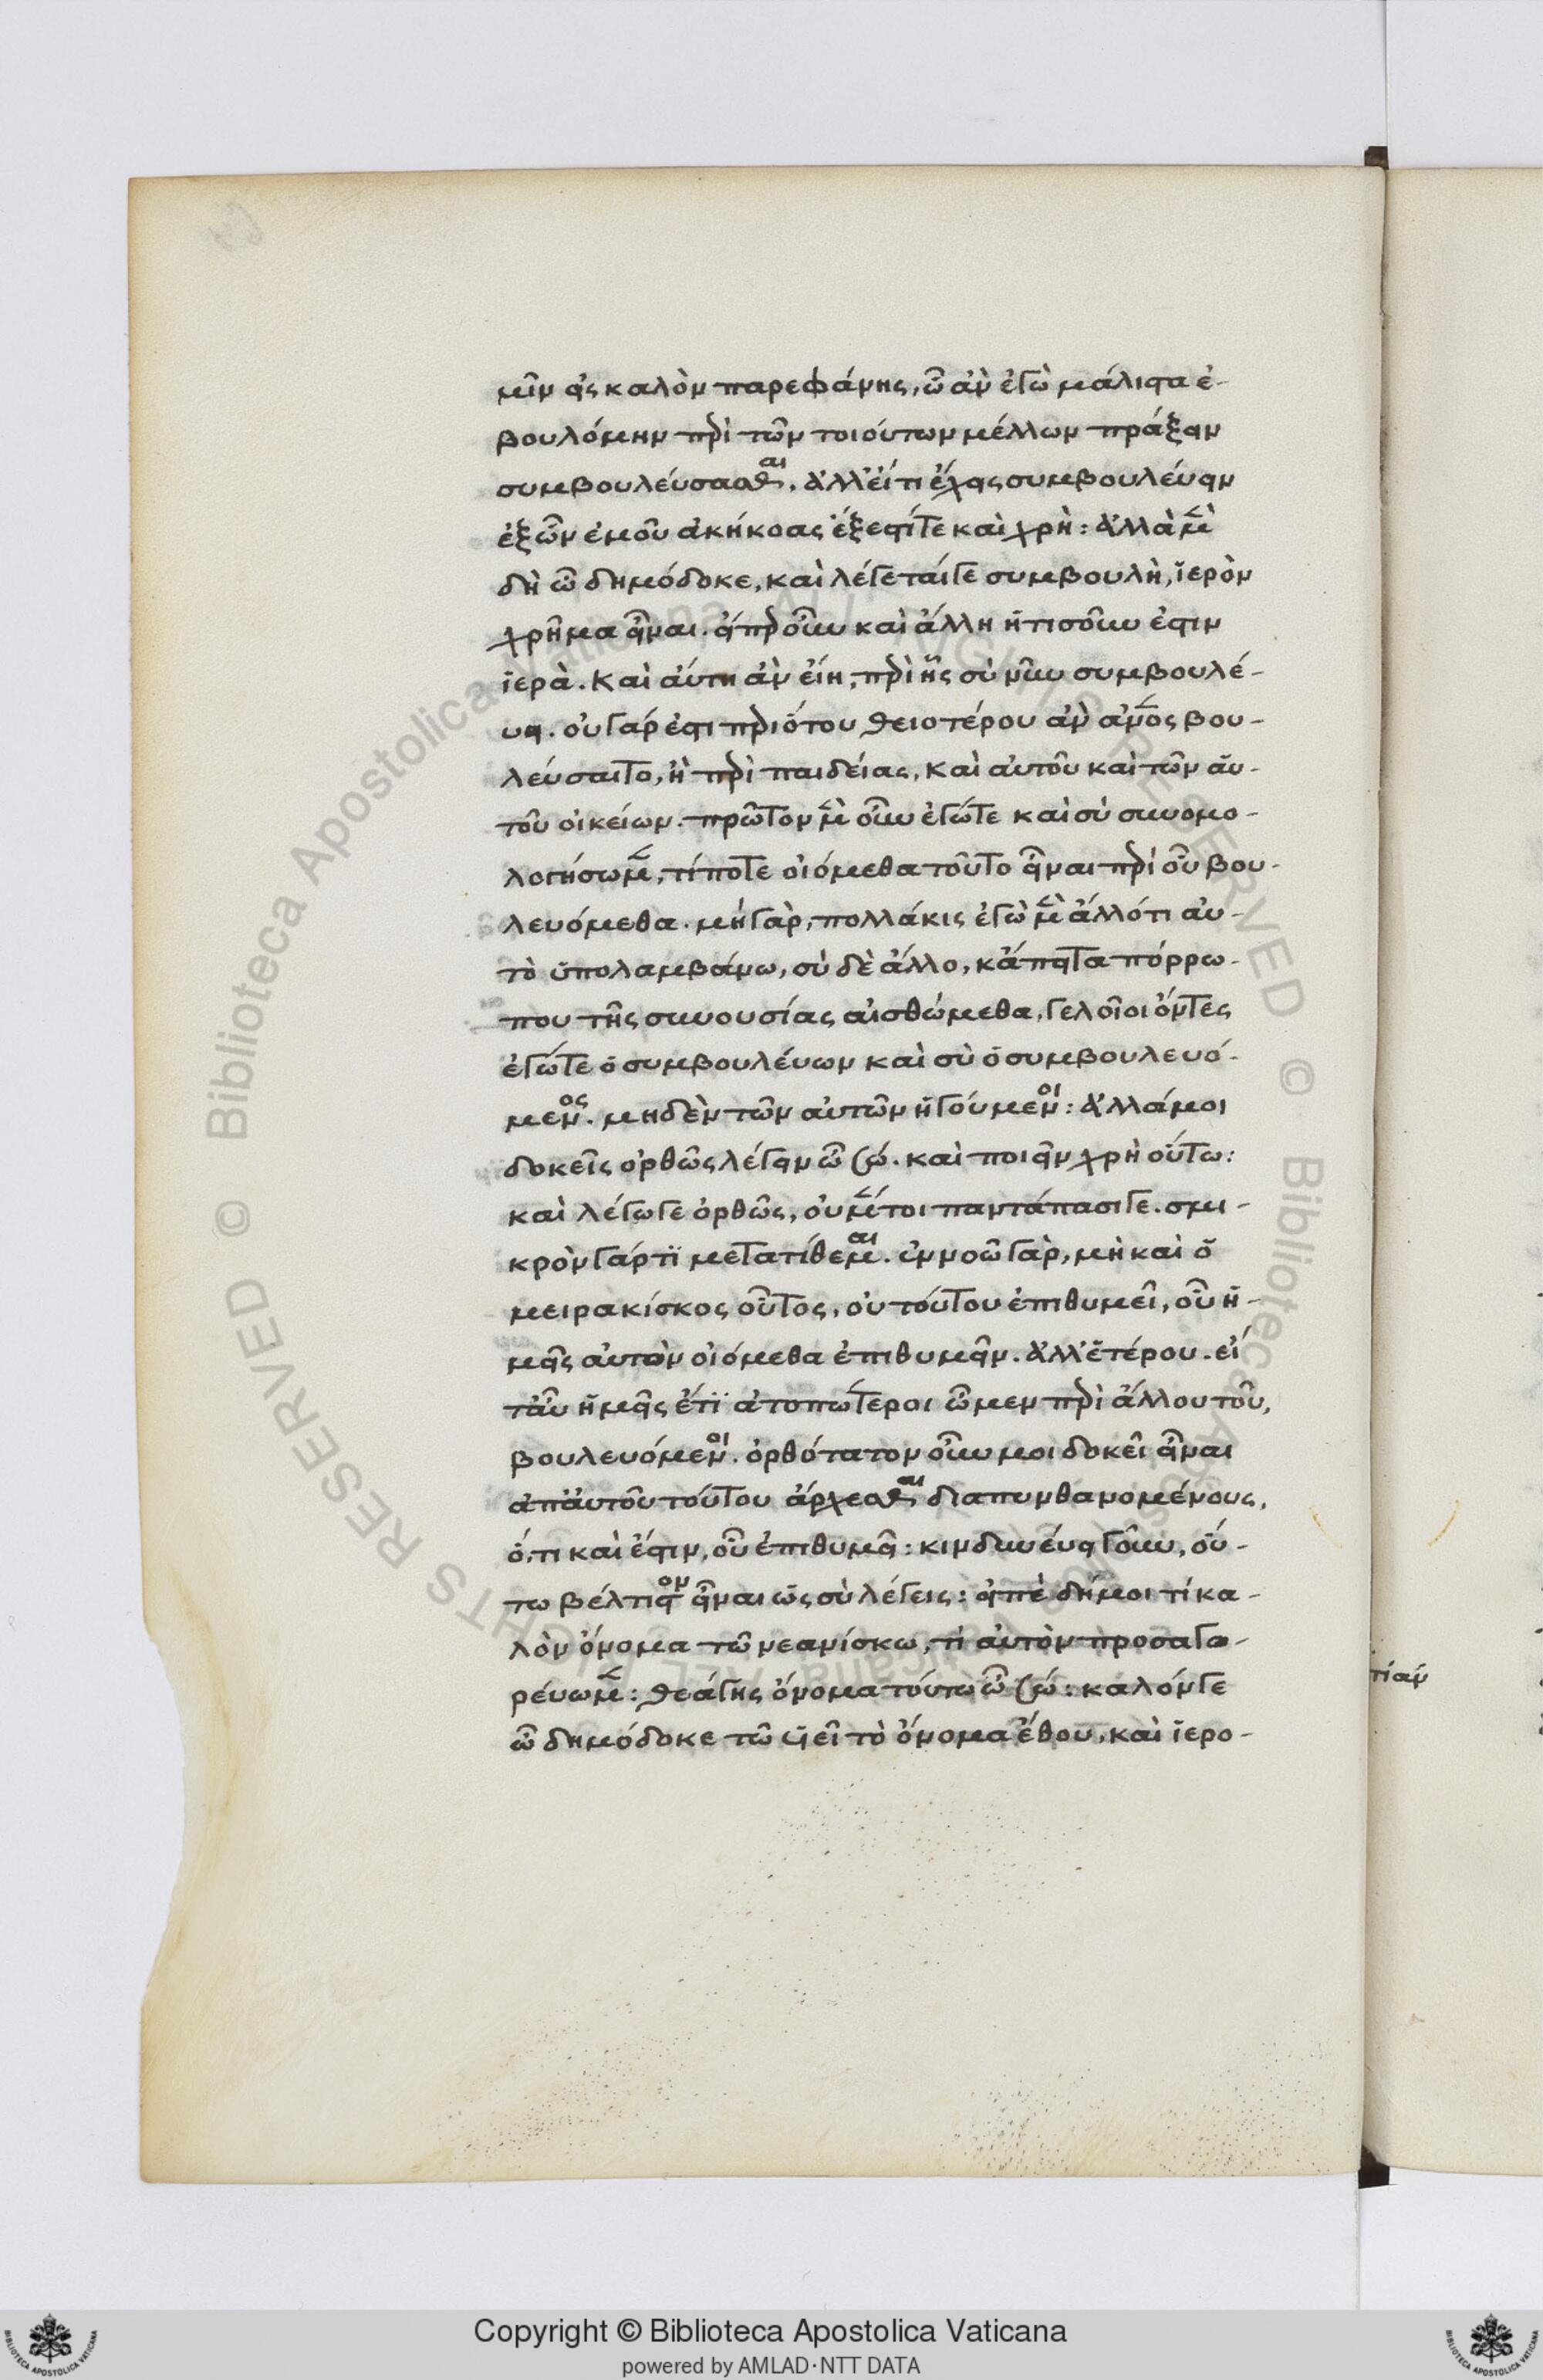 μῖν εἰς καλὸν παρεφάνης, ὧ ἂν ἐγὼ μάλιστα ἐ-
βουλόμην περὶ τῶν τοιούτων μέλλων πράξειν
συμβουλεύσασθαι. ἀλλ' εἴ τι ἔχεις συμβουλεύειν
ἐξ ὧν ἐμοῦ ἀκήκοας ἔξεστί τε καὶ χρὴ: ἀλλὰ μὲν
δὴ ὦ δημόδοκε, καὶ λέγεταί γε συμβουλὴ, ἱερὸν
χρῆμα εἶναι. εἴπερ οὖν καὶ ἄλλη ἡτισοῦν ἐστιν
ἱερὰ. καὶ αὕτη ἂν εἴη, περὶ ἧς σὺ νῦν συμβουλέ-
υει. οὐ γάρ ἐστι περὶ ὅτου θειοτέρου ἂν ἄνος βου-
λεύσαιτο, ἢ περὶ παιδείας, καὶ αὑτοῦ καὶ τῶν αὑ-
τοῦ οἰκείων. πρῶτον μὲν οὖν ἐγώ τε καὶ σὺ συνομο-
λογήσωμεν, τί ποτε οἰόμεθα τοῦτο εἶναι περὶ οὗ βου-
λευόμεθα. μὴ γὰρ, πολλάκις ἐγὼ μὲν ἄλλό τι αὐ-
τὸ ὑπολαμβάνω, σὺ δὲ ἄλλο, κἄπειτα πόρρω-
που τῆς συνουσίας αἰσθώμεθα, γελοῖοι ὄντες
ἐγώ τε ὁ συμβουλεύων καὶ σὺ ὁ συμβουλευό-
μενος. μηδὲν τῶν αὐτῶν ἡγούμενοι: ἀλλά μοι
δοκεῖς ὀρθῶς λέγειν ὦ σώ. καὶ ποιεῖν χρὴ οὕτω:
καὶ λέγω γε ὀρθῶς, οὐ μέντοι παντάπασί γε. σμι-
κρὸν γάρ τι μετατίθεμαι. ἐννοῶ γὰρ, μὴ καὶ ὁ
μειρακίσκος οὗτος, οὐ τούτου ἐπιθυμεῖ, οὗ ἡ-
μεῖς αὐτὸν οἰόμεθα ἐπιθυμεῖν. ἀλλ' ἑτέρου. εἶ
τ' αὖ ἡμεῖς ἔτι ἀτοπώτεροι ὦμεν περὶ ἄλλου τοῦ,
βουλευόμενοι. ὀρθότατον οὖν μοι δοκεῖ εἶναι
ἀπ' αὐτοῦ τούτου ἄρχεσθαι διαπυνθανομένους,
ὅ, τι καὶ ἔστιν, οὗ ἐπιθυμεῖ: κινδυνεύει γοῦν, οὕ-
τω βέλτιστον εἶναι ὡς σὺ λέγεις: εἰπὲ δή μοι τί κα-
λὸν ὄνομα τῶ νεανίσκω, τί αὐτὸν προσαγο-
ρεύωμεν: θεάγης ὄνομα τούτω ὦ σώ: καλόν γε
ὦ δημόδοκε τῶ υἱεῖ τὸ ὄνομα ἔθου, καὶ ἱερο-
τί ἂν